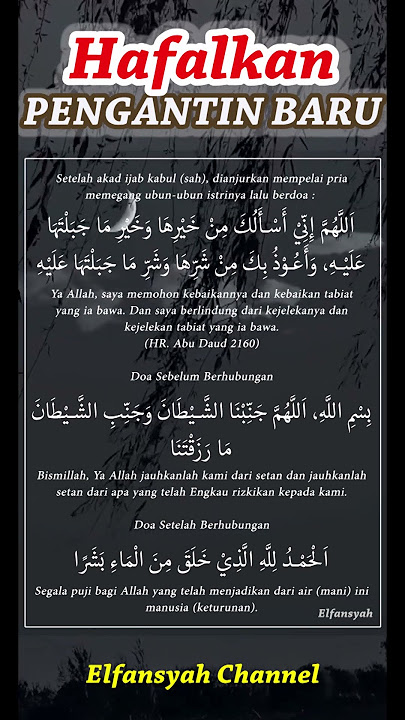 Hafalkan
PENGANTIN BARU
Setelah akad ijab kabul (sah), dianjurkan mempelai pria
memegang ubun-ubun istrinya lalu berdoa :
اَللَّهُمَّ إِنِّيْ أَسْأَلُكَ مِنْ خَيْرِهَا وَخَيْرِ مَا جَبَلْتَهَا
عَلَيْهِ، وَأَعُوْذُ بِكَ مِنْ شَرِّهَا وَشَرِّ مَا جَبَلْتَهَا عَلَيْهِ
Ya Allah, saya memohon kebaikannya dan kebaikan tabiat
yang ia bawa. Dan saya berlindung dari kejelekanya dan
kejelekan tabiat yang ia bawa.
(HR. Abu Daud 2160)
Doa Sebelum Berhubungan
بِسْمِ اللَّهِ، اَللَّهُمَّ جَنِّبْنَا الشَّيْطَانَ وَجَنِّبِ الشَّيْطَانَ
مَا رَزَقْتَنَا
Bismillah, Ya Allah jauhkanlah kami dari setan dan jauhkanlah
setan dari apa yang telah Engkau rizkikan kepada kami.
Doa Setelah Berhubungan
اَلْحَمْدُ لِلَّهِ الَّذِيْ خَلَقَ مِنَ الْمَاءِ بَشَرًا
Segala puji bagi Allah yang telah menjadikan dari air (mani) ini
manusia (keturunan).
Elfansyah
Elfansyah Channel